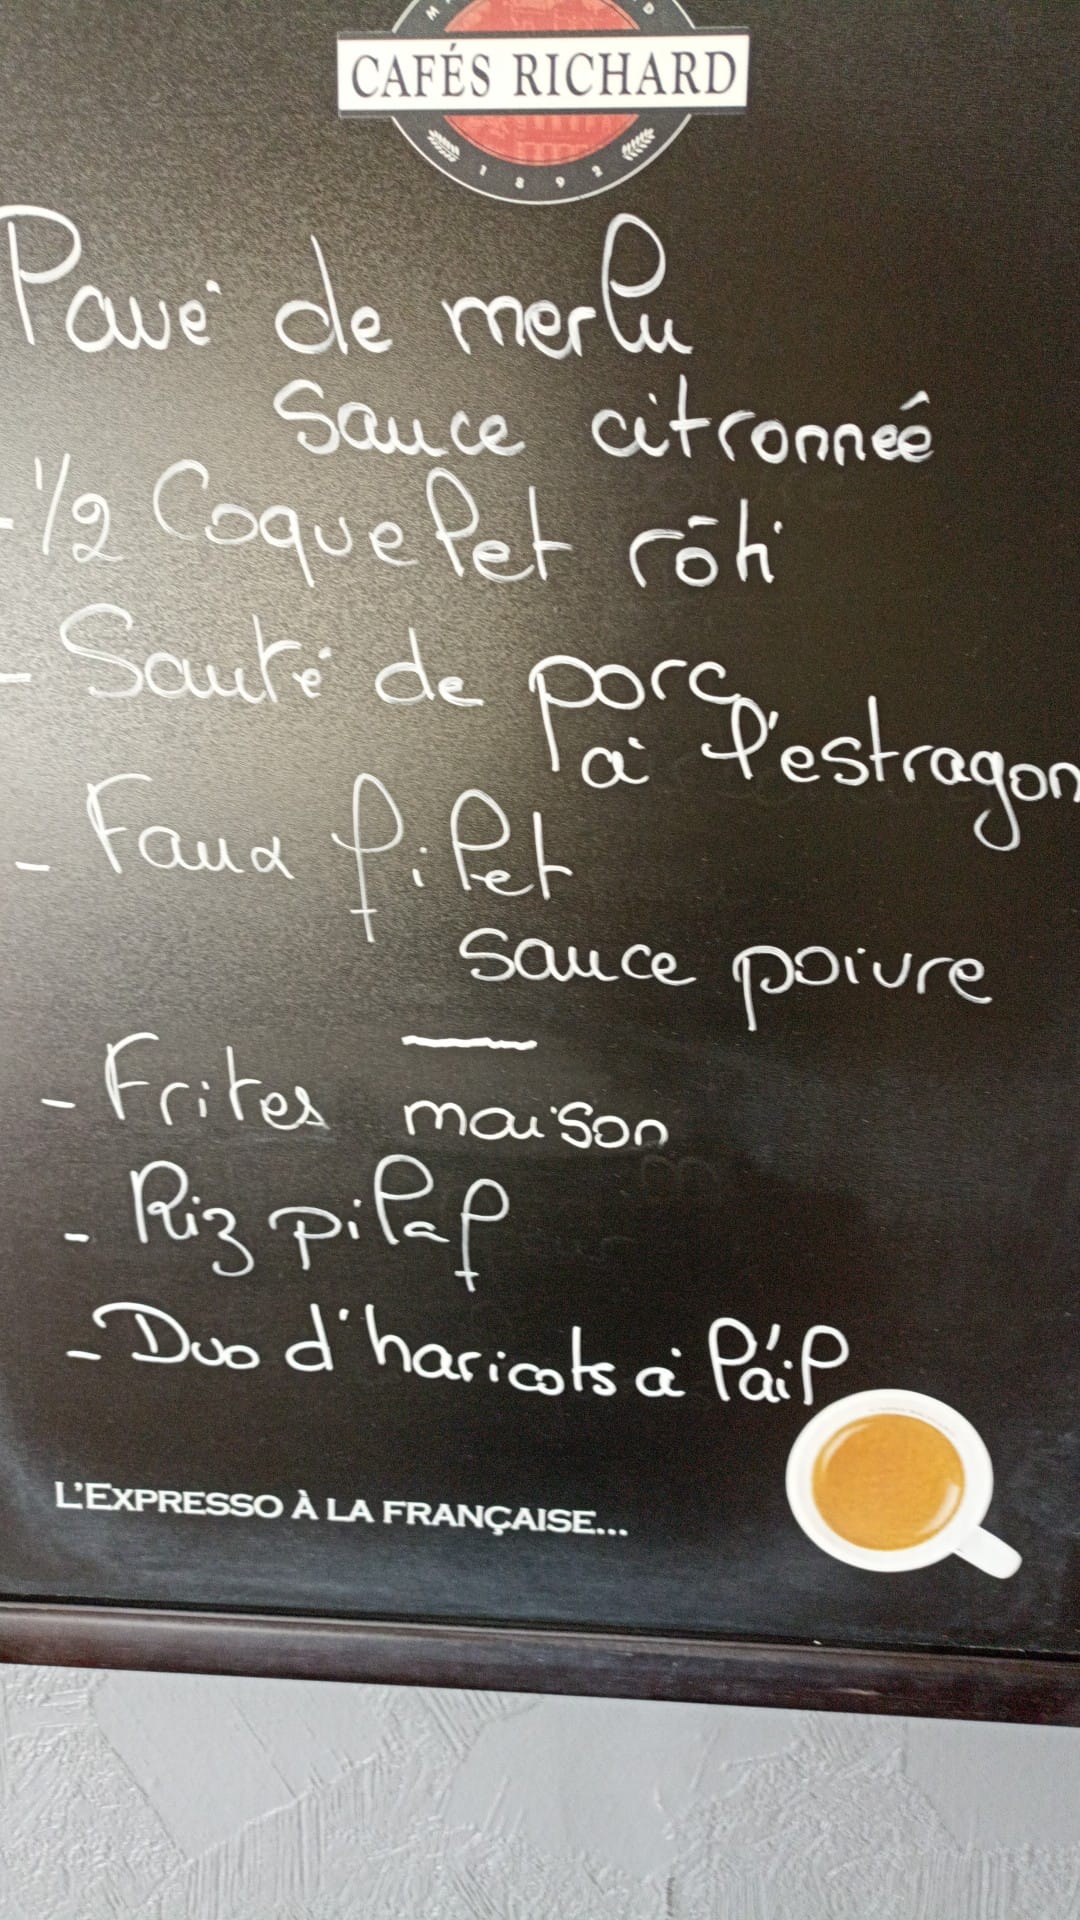 CAFÉS RICHARD
1892
Pavé de merlu
sauce citronneé
- 1/2 Coquelet rôti
- Sauté de porc
à l'estragon
- Faux filet
sauce poivre
- Frites maison
- Riz pilaf
- Duo d'haricots à l'ail
L'EXPRESSO À LA FRANÇAISE...